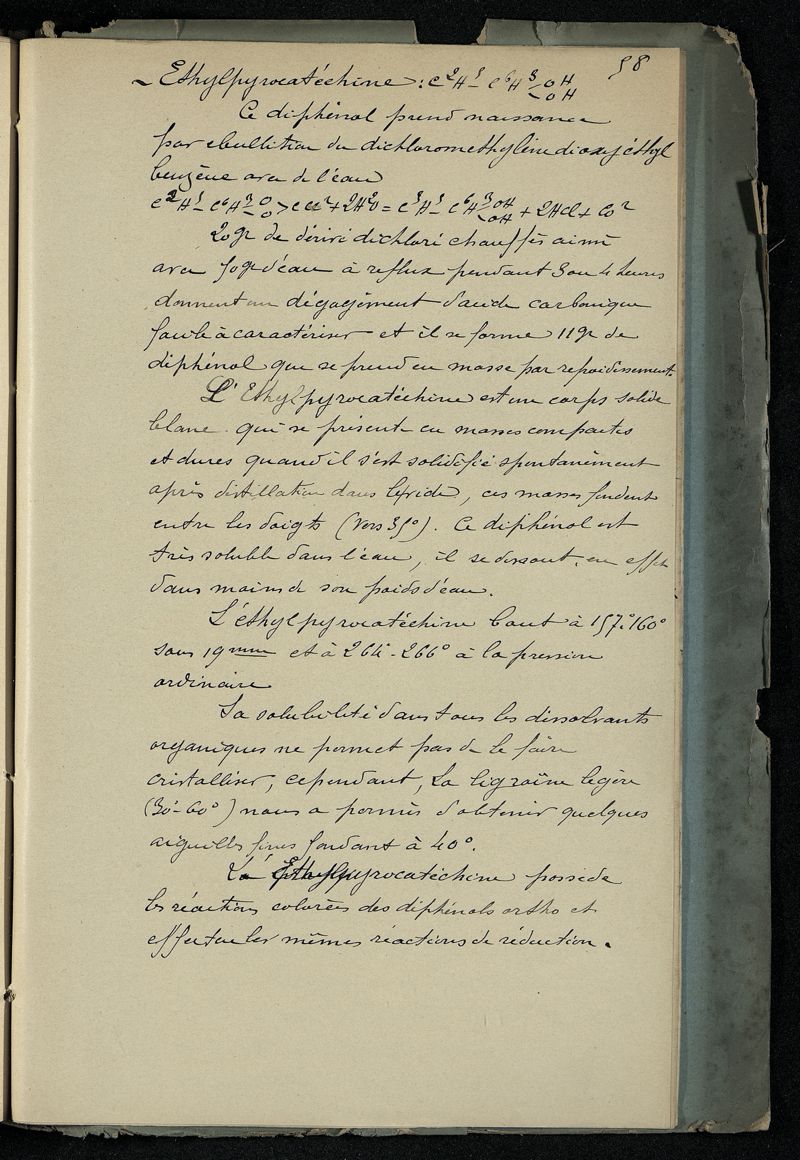 58
- Ethylpyrocatéchine : C²H⁵- C⁶H³ -OH -OH
Ce diphénol prend naissance
par ebullition du dichloromethylène dioxyéthyl
benzène avec de l'éau
C²H⁵- C⁶H³ -O -O > CCl² + 2H²O = C²H⁵- C⁶H³ -OH -OH + 2HCl + CO²
20gr de dérivé dichloré chauffés ainsi
avec 50gr d'éau à reflux pendant 3 ou 4 heures
donnent un dégagement d'acide carbonique
facile à caractériser et il se forme 11gr de
diphénol que se prend en masse par refroidissement.
L'Ethylpyrocatéchine est un corps solide
blanc qui se présente en masses compactes
et dures quand il s'est solidifié spontanément
après distillation dans le vide, ces masses fondent
entre les doigts (vers 35°). Ce diphénol est
très soluble dans l'eau, il se dissout, en effet
dans moins de son poids d'eau.
L'éthylpyrocatéchine bout à 157°-160°
sous 19mm et à 264°-266° à la pression
ordinaire
Sa solubilité dans tous les dissolvants
organiques ne permet pas de le faire
cristalliser, cependant, la ligroïne légère
(30°-60°) nous a permis d'obtenir quelques
aiguilles fines fondant à 40°.
L'Ethylpyrocatéchine possède
les réactions colorées des diphénols ortho et
effectue les mêmes réactions de réduction.